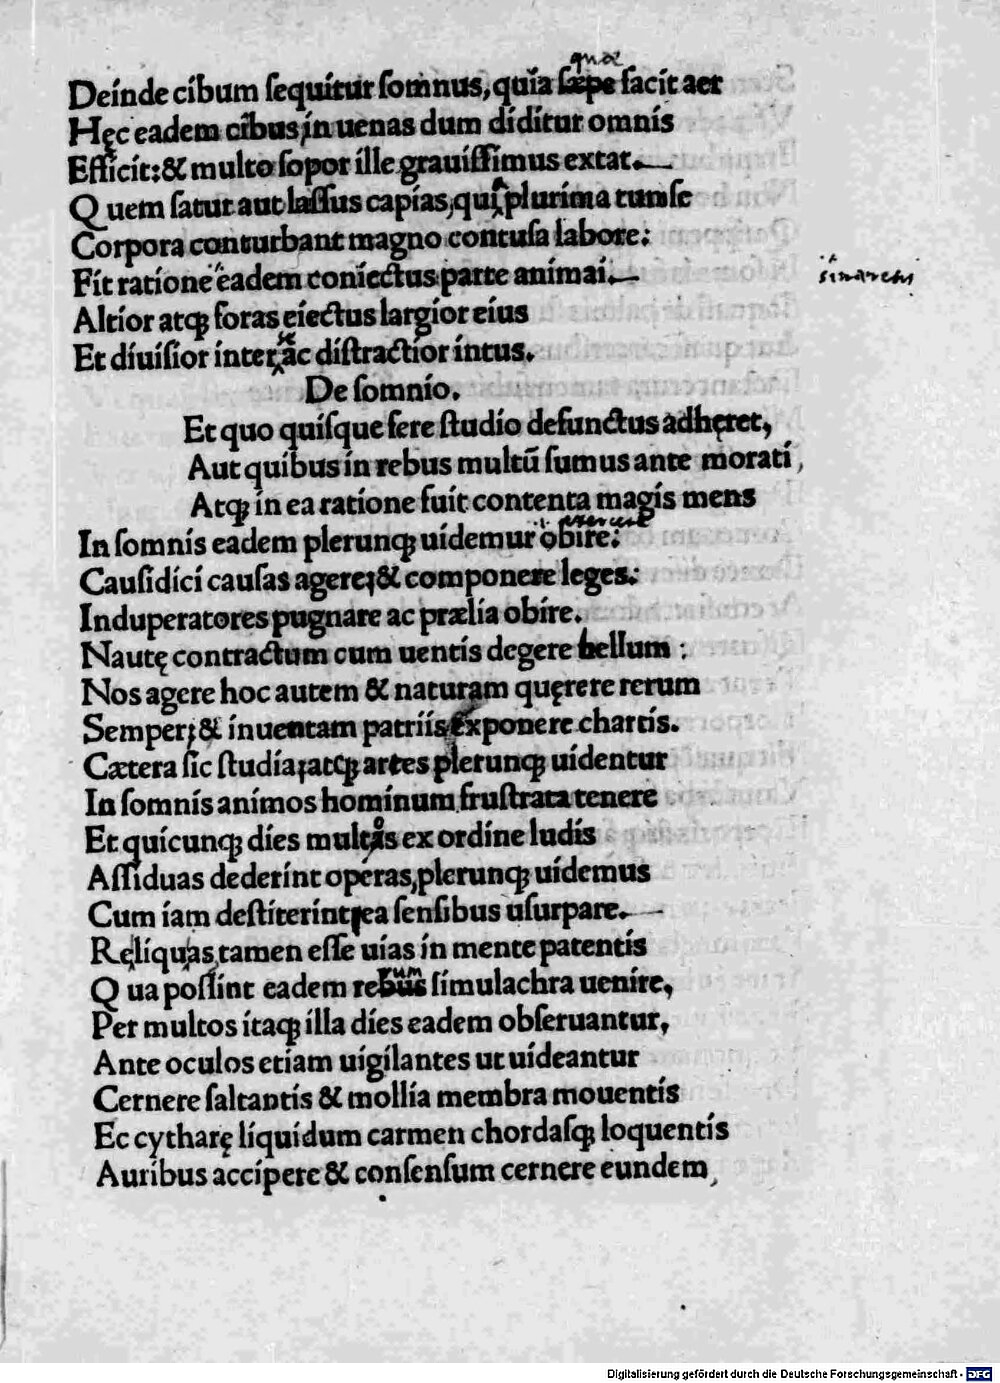 quae
Deinde cibum sequitur somnus, quia sæpe facit aer
Hęc eadem cibus, in uenas dum diditur omnis
Efficit: & multo sopor ille grauissimus extat.
Quem satur aut lassus capias, quia plurima tum se
Corpora conturbant magno contusa labore:
Fit ratione eadem coniectus parte animai.
Altior atqȝ foras eiectus largior eius
se
Et diuisior inter ac distractior intus.
De somnio.
Et quo quisque fere studio defunctus adhęret,
Aut quibus in rebus multū sumus ante morati,
Atqȝ in ea ratione fuit contenta magis mens
In somnis eadem plerunqȝ uidemur obire:
Causidici causas agere; & componere leges.
Induperatores pugnare ac prælia obire.
Nautę contractum cum uentis degere bellum:
Nos agere hoc autem & naturam quęrere rerum
Semper; & inuentam patriis exponere chartis.
Cætera sic studia, atqȝ artes plerunqȝ uidentur
In somnis animos hominum frustrata tenere
Et quicunqȝ dies multos ex ordine ludis
Assiduas dederint operas, plerunqȝ uidemus
Cum iam destiterint ea sensibus usurpare.
Reliquas tamen esse uias in mente patentis
um
Qua possint eadem rebus simulachra uenire,
Per multos itaqȝ illa dies eadem obseruantur,
Ante oculos etiam uigilantes ut uideantur
Cernere saltantis & mollia membra mouentis
Ec cytharę liquidum carmen chordasqȝ loquentis
Auribus accipere & consensum cernere eundem,
Digitalisierung gefördert durch die Deutsche Forschungsgemeinschaft - DFG